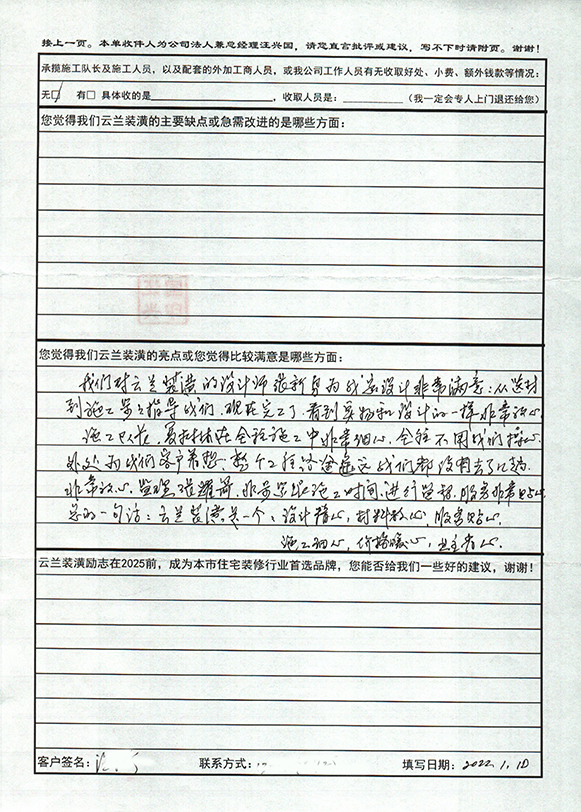 接上一页。本单收件人为公司法人兼总经理汪兴国，请您直言批评或建议，写不下时请附页。谢谢！
承揽施工队长及施工人员，以及配套的外加工商人员，或我公司工作人员有无收取好处、小费、额外钱款等情况：
无☑ 有□ 具体收的是＿＿＿＿＿＿，收取人员是：＿＿＿＿（我一定会专人上门退还给您）
您觉得我们云兰装潢的主要缺点或急需改进的是哪些方面：
您觉得我们云兰装潢的亮点或您觉得比较满意是哪些方面：
我们对云兰装潢的设计师张新为我家设计非常满意：从选材
到施工指导我们，现在完工了，看到实物和设计的一样非常放心
施工队长 在全程施工中非常细心，全程不用我们操心
处处为我们客户着想，整个工程 我们都没有去几趟
非常放心，监理 施工时间进行监督，服务非常贴心
总的一句话：云兰装潢是一个，设计精心，材料放心，服务贴心
施工细心，价格暖心，业主省心。
云兰装潢励志在2025前，成为本市住宅装修行业首选品牌，您能否给我们一些好的建议，谢谢！
客户签名： 联系方式： 填写日期：2022.1.10